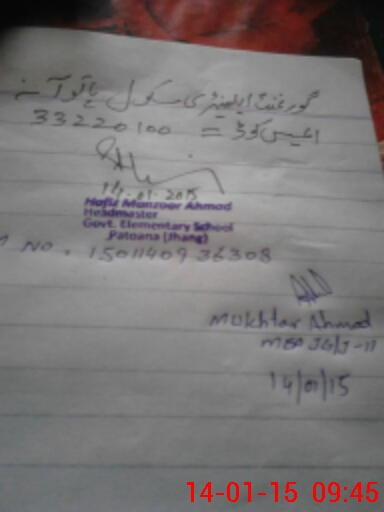 گورنمنٹ ایلیمنٹری سکول پاتوآنہ
ایمس کوڈ = 33220100
14-01-2015
Hafiz Manzoor Ahmad
Headmaster
Govt. Elementary School
Patoana (Jhang)
No. 1501140936308
Mukhtar Ahmad
MEA JG/J-11
14/01/15
14-01-15 09:45